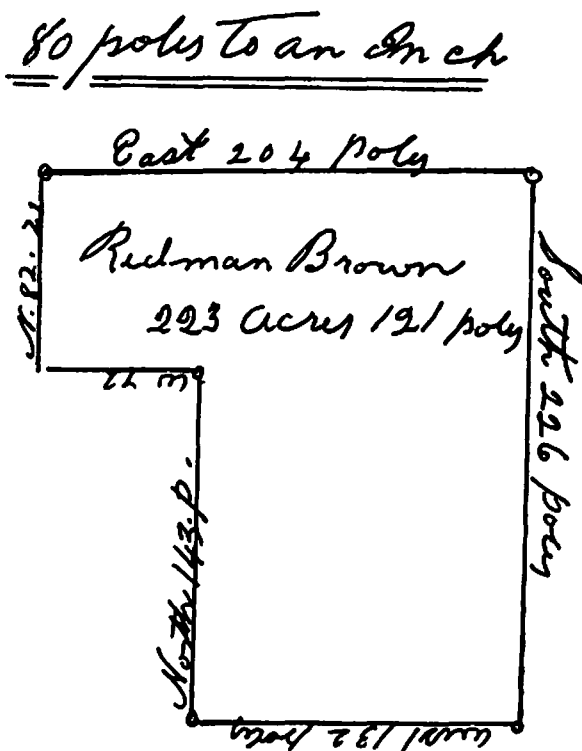 80 poles To an Inch
East 204 Poles
N. 82. 21
Redman Brown
223 Acres 121 poles
South 226 poles
W 72
North 143. P.
West 132 poles